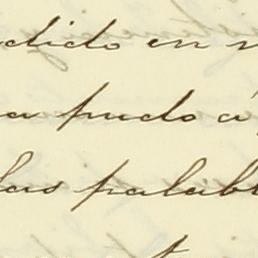 dido en
a pudo á
las palab